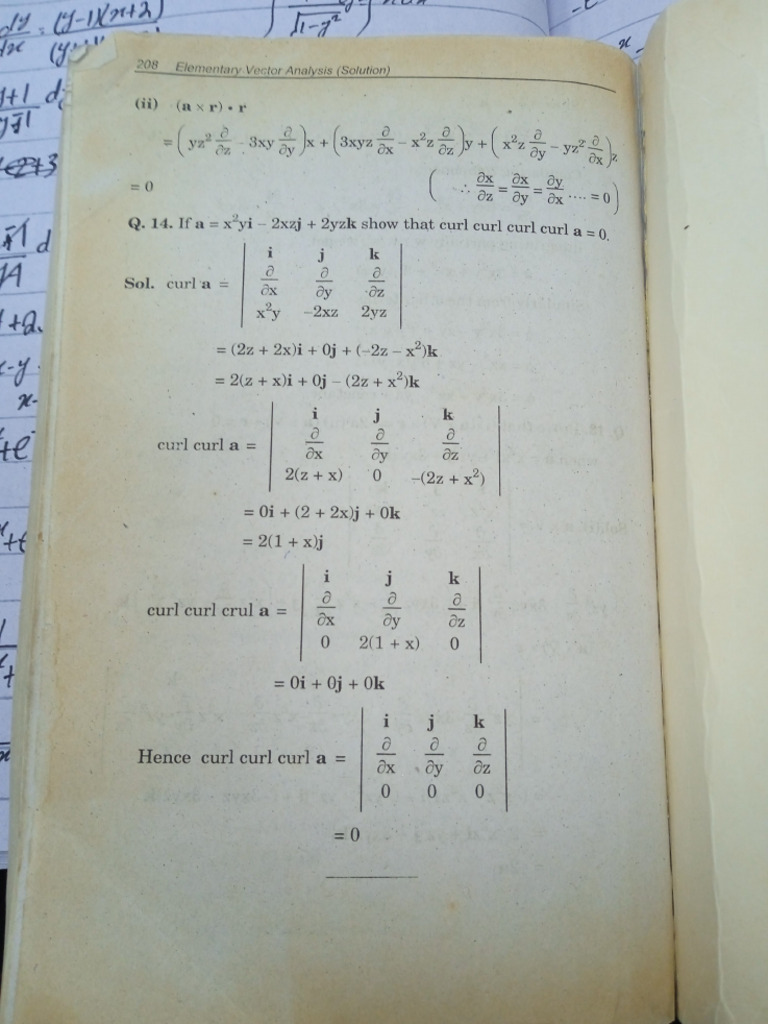 208 Elementary Vector Analysis (Solution)
(ii) (a × r) • r
= ( yz² ∂/∂z − 3xy ∂/∂y )x + ( 3xyz ∂/∂x − x²z ∂/∂z )y + ( x²z ∂/∂y − yz² ∂/∂x )z
= 0 ( ∴ ∂x/∂z = ∂x/∂y = ∂y/∂x .... = 0 )
Q. 14. If a = x²yi − 2xzj + 2yzk show that curl curl curl curl a = 0.
i j k
Sol. curl a = ∂/∂x ∂/∂y ∂/∂z
x²y −2xz 2yz
= (2z + 2x)i + 0j + (−2z − x²)k
= 2(z + x)i + 0j − (2z + x²)k
i j k
curl curl a = ∂/∂x ∂/∂y ∂/∂z
2(z + x) 0 −(2z + x²)
= 0i + (2 + 2x)j + 0k
= 2(1 + x)j
i j k
curl curl crul a = ∂/∂x ∂/∂y ∂/∂z
0 2(1 + x) 0
= 0i + 0j + 0k
i j k
Hence curl curl curl a = ∂/∂x ∂/∂y ∂/∂z
0 0 0
= 0
dy/dx = (y-1)(x+2)